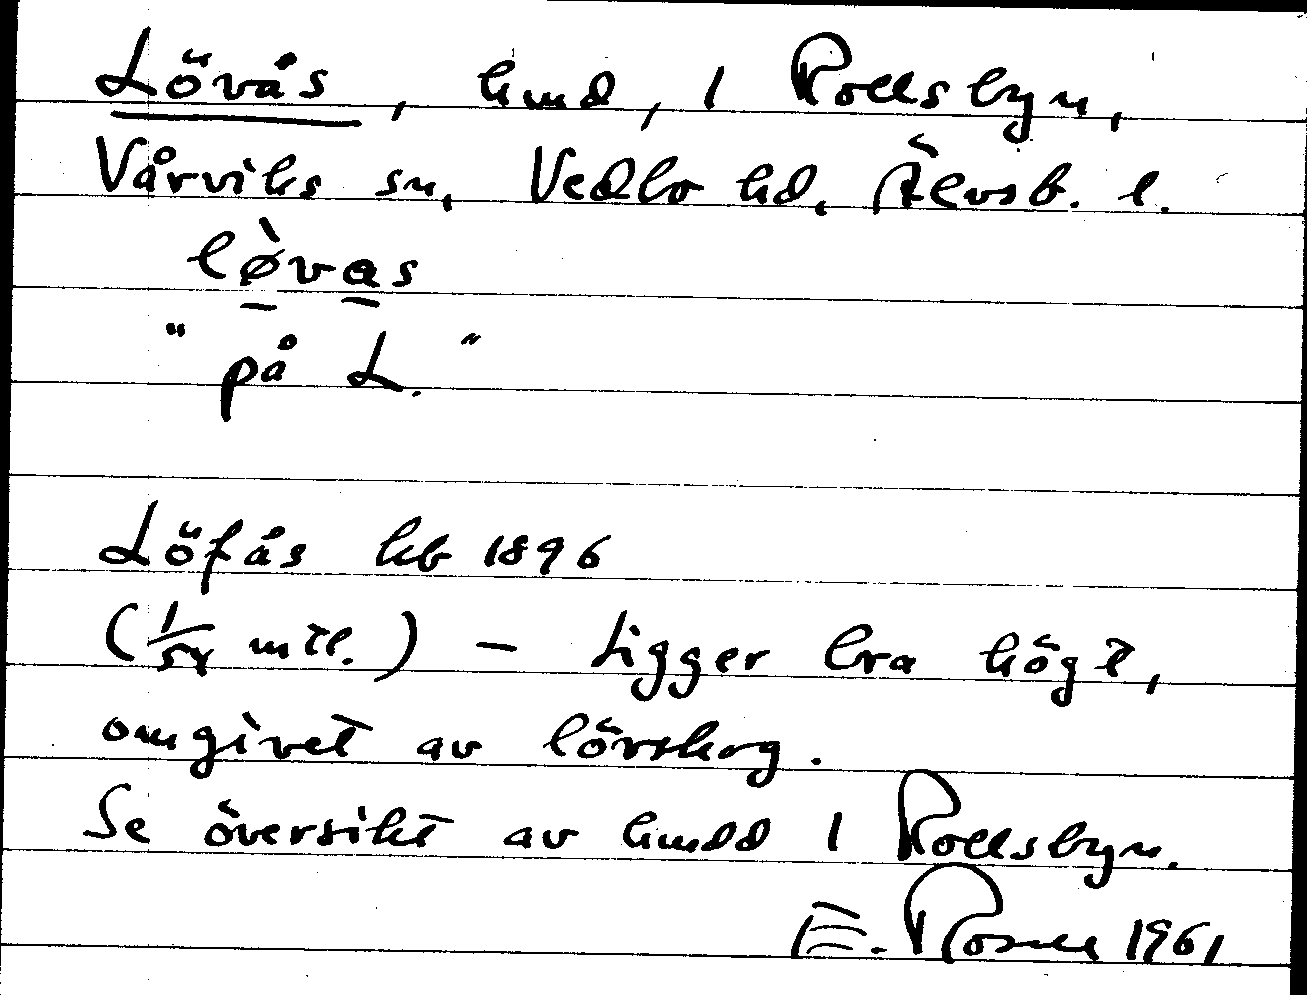 Lövås, hmd, i Rollsbyn,
Vårviks sn, Vedbo hd, Älvsb. l.
lø̀vas
"på L."
Löfås hb 1896
(1/54 mtl.) – Ligger bra högt,
omgivet av lövskog.
Se översikt av hmdd i Rollsbyn.
E. 1961